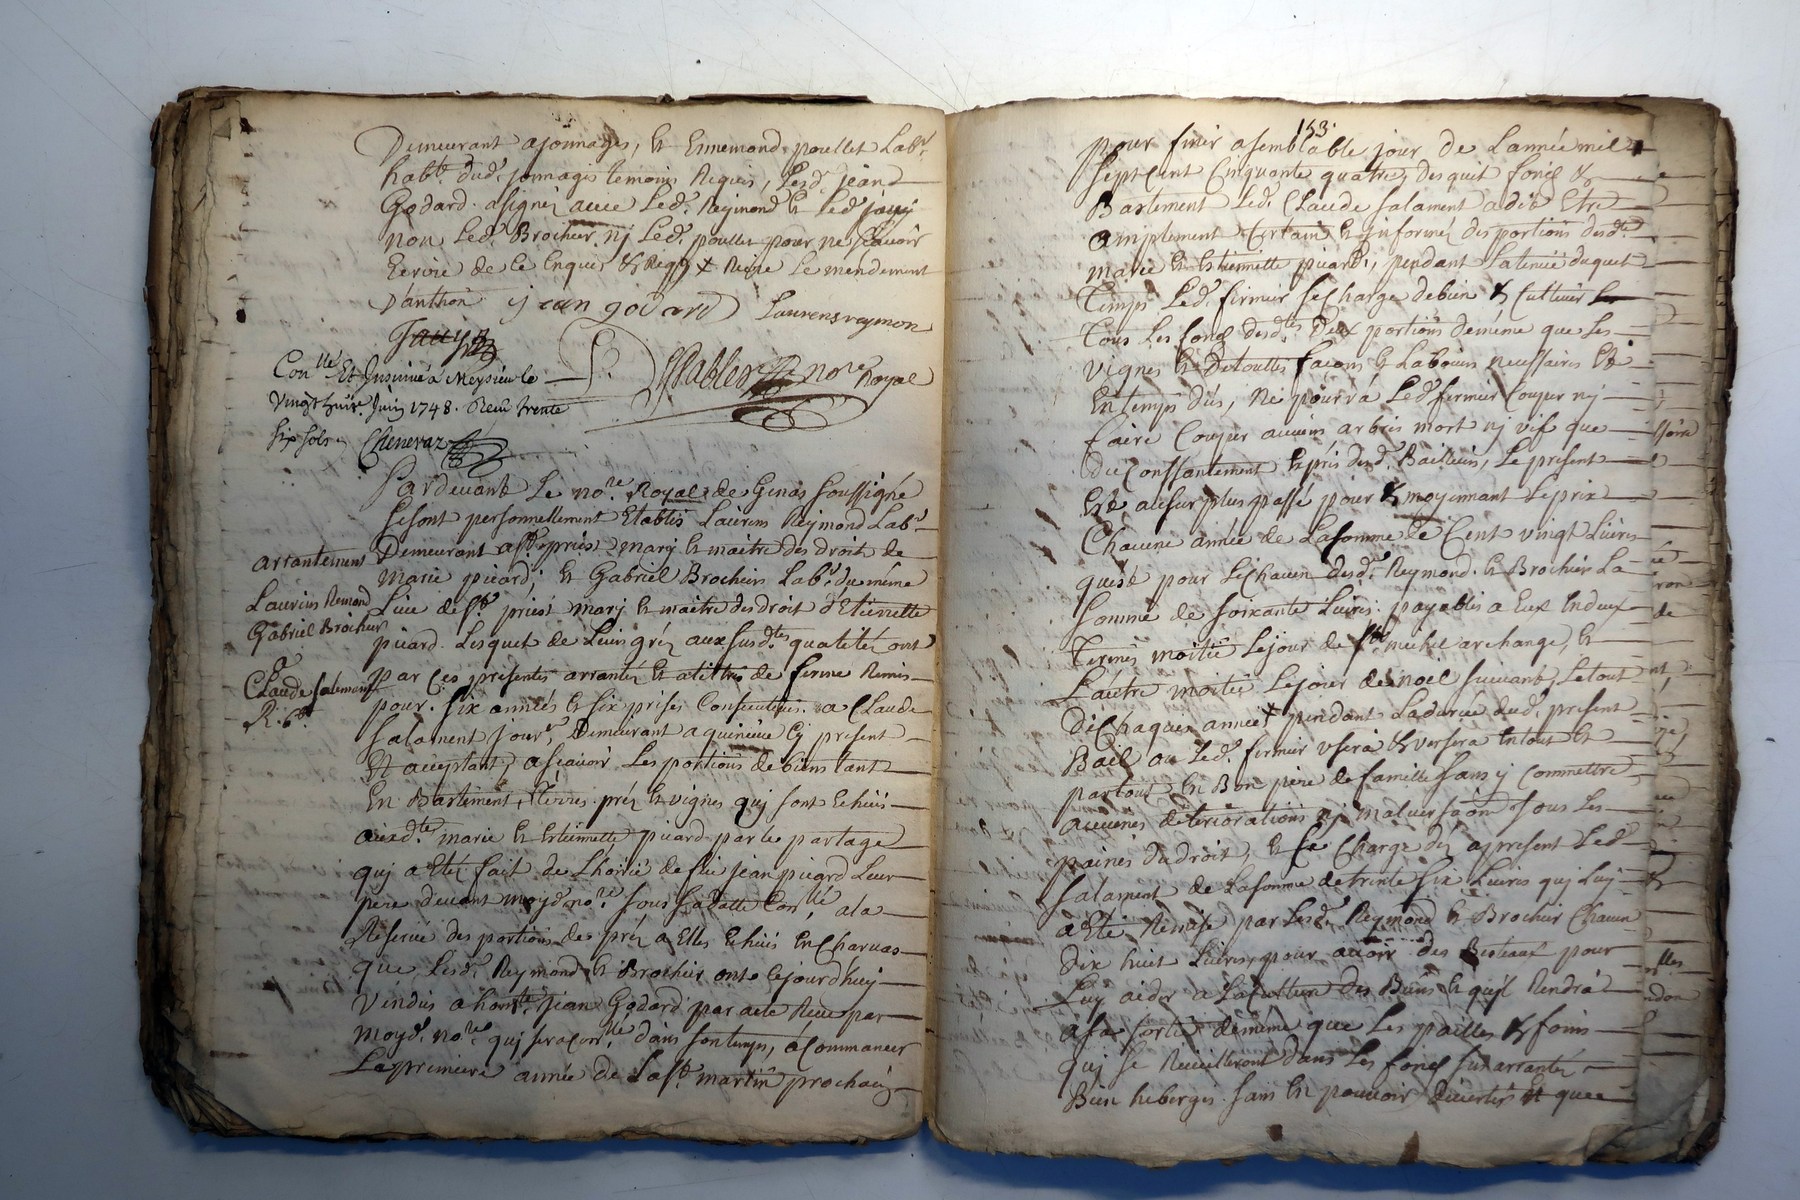 Demeurant a jonnages, et Ennemond poullet Labr.
habt. dud. jonnages temoins Requis, Lesd. jean
Godard a signéz avec Led. Reymond et Led. jayy
non Led. Brochier nj Led. poullet pour ne sçavoir
Ecrire de ce Enquis & Reqq
D'anthon jean godard Laurens raymon
nore. Royal
Conlle. Et Insinué a Meysieu le
Vingt huit. Juin 1748. Reçu trente
six sols. Cheneraz
Pardevant Le nore. Royal de Genas soussigné
se sont personnellement Etablis Laurens Reymond Labr.
Demeurant a St. priest mary et maitre des droit de
marie picard, et Gabriel Brochier Labr. du même
Lieu de St. priest mary et maitre des droit d'Etiennette
picard. Lesquel de Leurs gréz aux susdtes. qualitéz ont
par Ces presentes arrantéz et a tittres de ferme Remis
pour six années et six prises Consecutives a Claude
Salament jourr. Demeurant a quinieu Cy present
Et acceptant, a sçavoir Les portions de biens tant
En Bastiment, Terres préz et vignes quj sont Echuës
auxdtes. marie et Etiennette picard par le partage
quj a Etéz fait de Lhoirie de feu jean picard Leur
père devant moyd. nore. sous sa datte Conlle. a la
Reserve des portions des préz a Elles Echuës En Charvas
que Lesd. Reymond et Brochier ont cejourd'huy
Vendus a honte. jean Godard par acte Reçu par
moyd. nore. quj sera Conlle. dans son temps, à Commancer
La premiere année de La St. martin prochain
arrantement
Laurens Remond
Gabriel Brochier
a
Claude Salement
153.
pour finir a semblable jour de L'année mil
sept Cent Cinquante quatre, desquel fonds &
Bastiment Led. Claude Salament a dit Etre
amplement Certain et informéz des portions desdtes.
marie et Etiennette picard, pendant La tenüe duquel
Temps Led. fermier se Charge de bien & Cultiver
Tous Les fonds desdtes. Deux portions de même que Les
vignes et De touttes façons et Labours necessaires Et
En temps dûs, Ne pourra Led. fermier Couper nj
faire Couper aucuns arbres mort nj vif que
du Consentement Exprés desd. Bailleurs, Le present
Est au surplus passé pour & moyennant Le prix
Chacune année de La somme de Cent vingt Livres
quest pour Chacun desd. Reymond et Brochier La
somme de soixante Livres payables a Eux En deux
Termes moitié Le jour de St. michel archange, et
L'autre moitié Le jour de noel suivant, Le tout
de Chaque année pendant La durée dud. present
Bail ou Led. fermier usera & versera En tout et
par tout En Bon père de famille sans y Commettre
aucunes deteriorations nj malversaõn sous Les
paines du droit, et se Charge dez a present Led.
Salament de La somme de trente six Livres quj Luy
a Eté Remise par Lesd. Reymond et Brochier Chacun
Dix huit Livres, pour avoir des Bestiaux pour
Luy aider a La Culture des Biens et qu'jl Rendra
a sa sortie de même que Les pailles & foins
quj se Recueilleront dans Les fonds sus arrantéz
Bien heberges sans En pouvoir Divertir